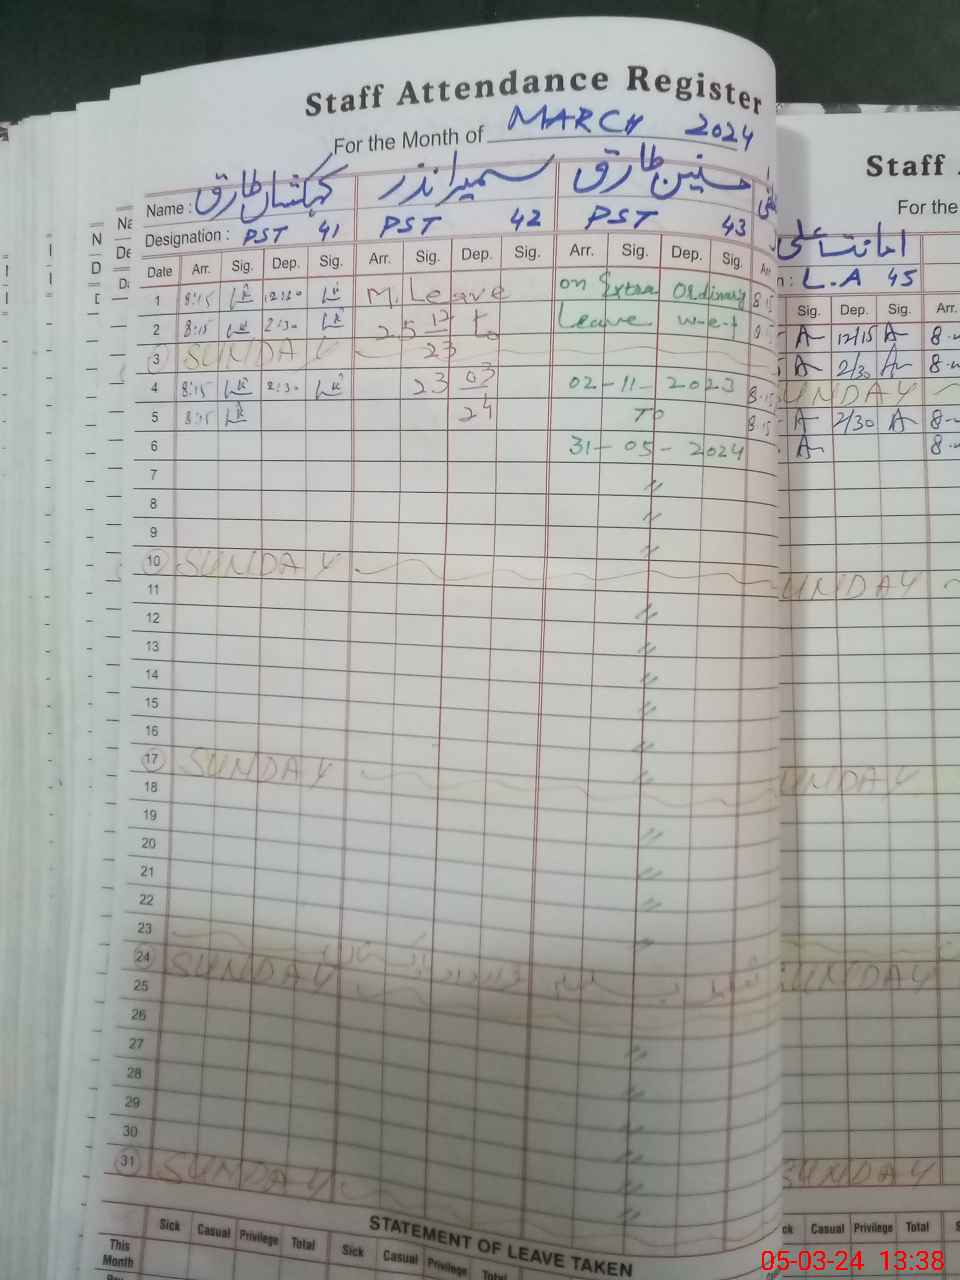 Staff Attendance Register
For the Month of MARCH 2024
Name : کہکشاں طارق سمیرا نذر حسنین طارق
Designation : PST 41 PST 42 PST 43
Date Arr. Sig. Dep. Sig. Arr. Sig. Dep. Sig. Arr. Sig. Dep. Sig. Arr
1 8:15 12:30 M. Leave on Extra Ordinary 8:15
2 8:15 2:30 25 12 to Leave w-e-f
3 SUNDAY 23
4 8:15 2:30 23 03 02-11-2023 8:15
5 8:15 24 To 8:15
6 31-05-2024
7 "
8 "
9 "
10 SUNDAY
11
12 "
13 "
14 "
15 "
16 "
17 SUNDAY "
18
19 "
20 "
21 "
22 "
23 "
24 SUNDAY
25
26
27 "
28 "
29 "
30 "
31 SUNDAY "
"
STATEMENT OF LEAVE TAKEN
Sick Casual Privilege Total Sick Casual Privilege Total
This Month
Staff
For the
امانت علی
: L.A 45
Sig. Dep. Sig. Arr.
A 12/15 A
A 2/30 A
SUNDAY
A 2/30 A
A
UNDAY
UNDAY
SUNDAY
SUNDAY
Casual Privilege Total
05-03-24 13:38